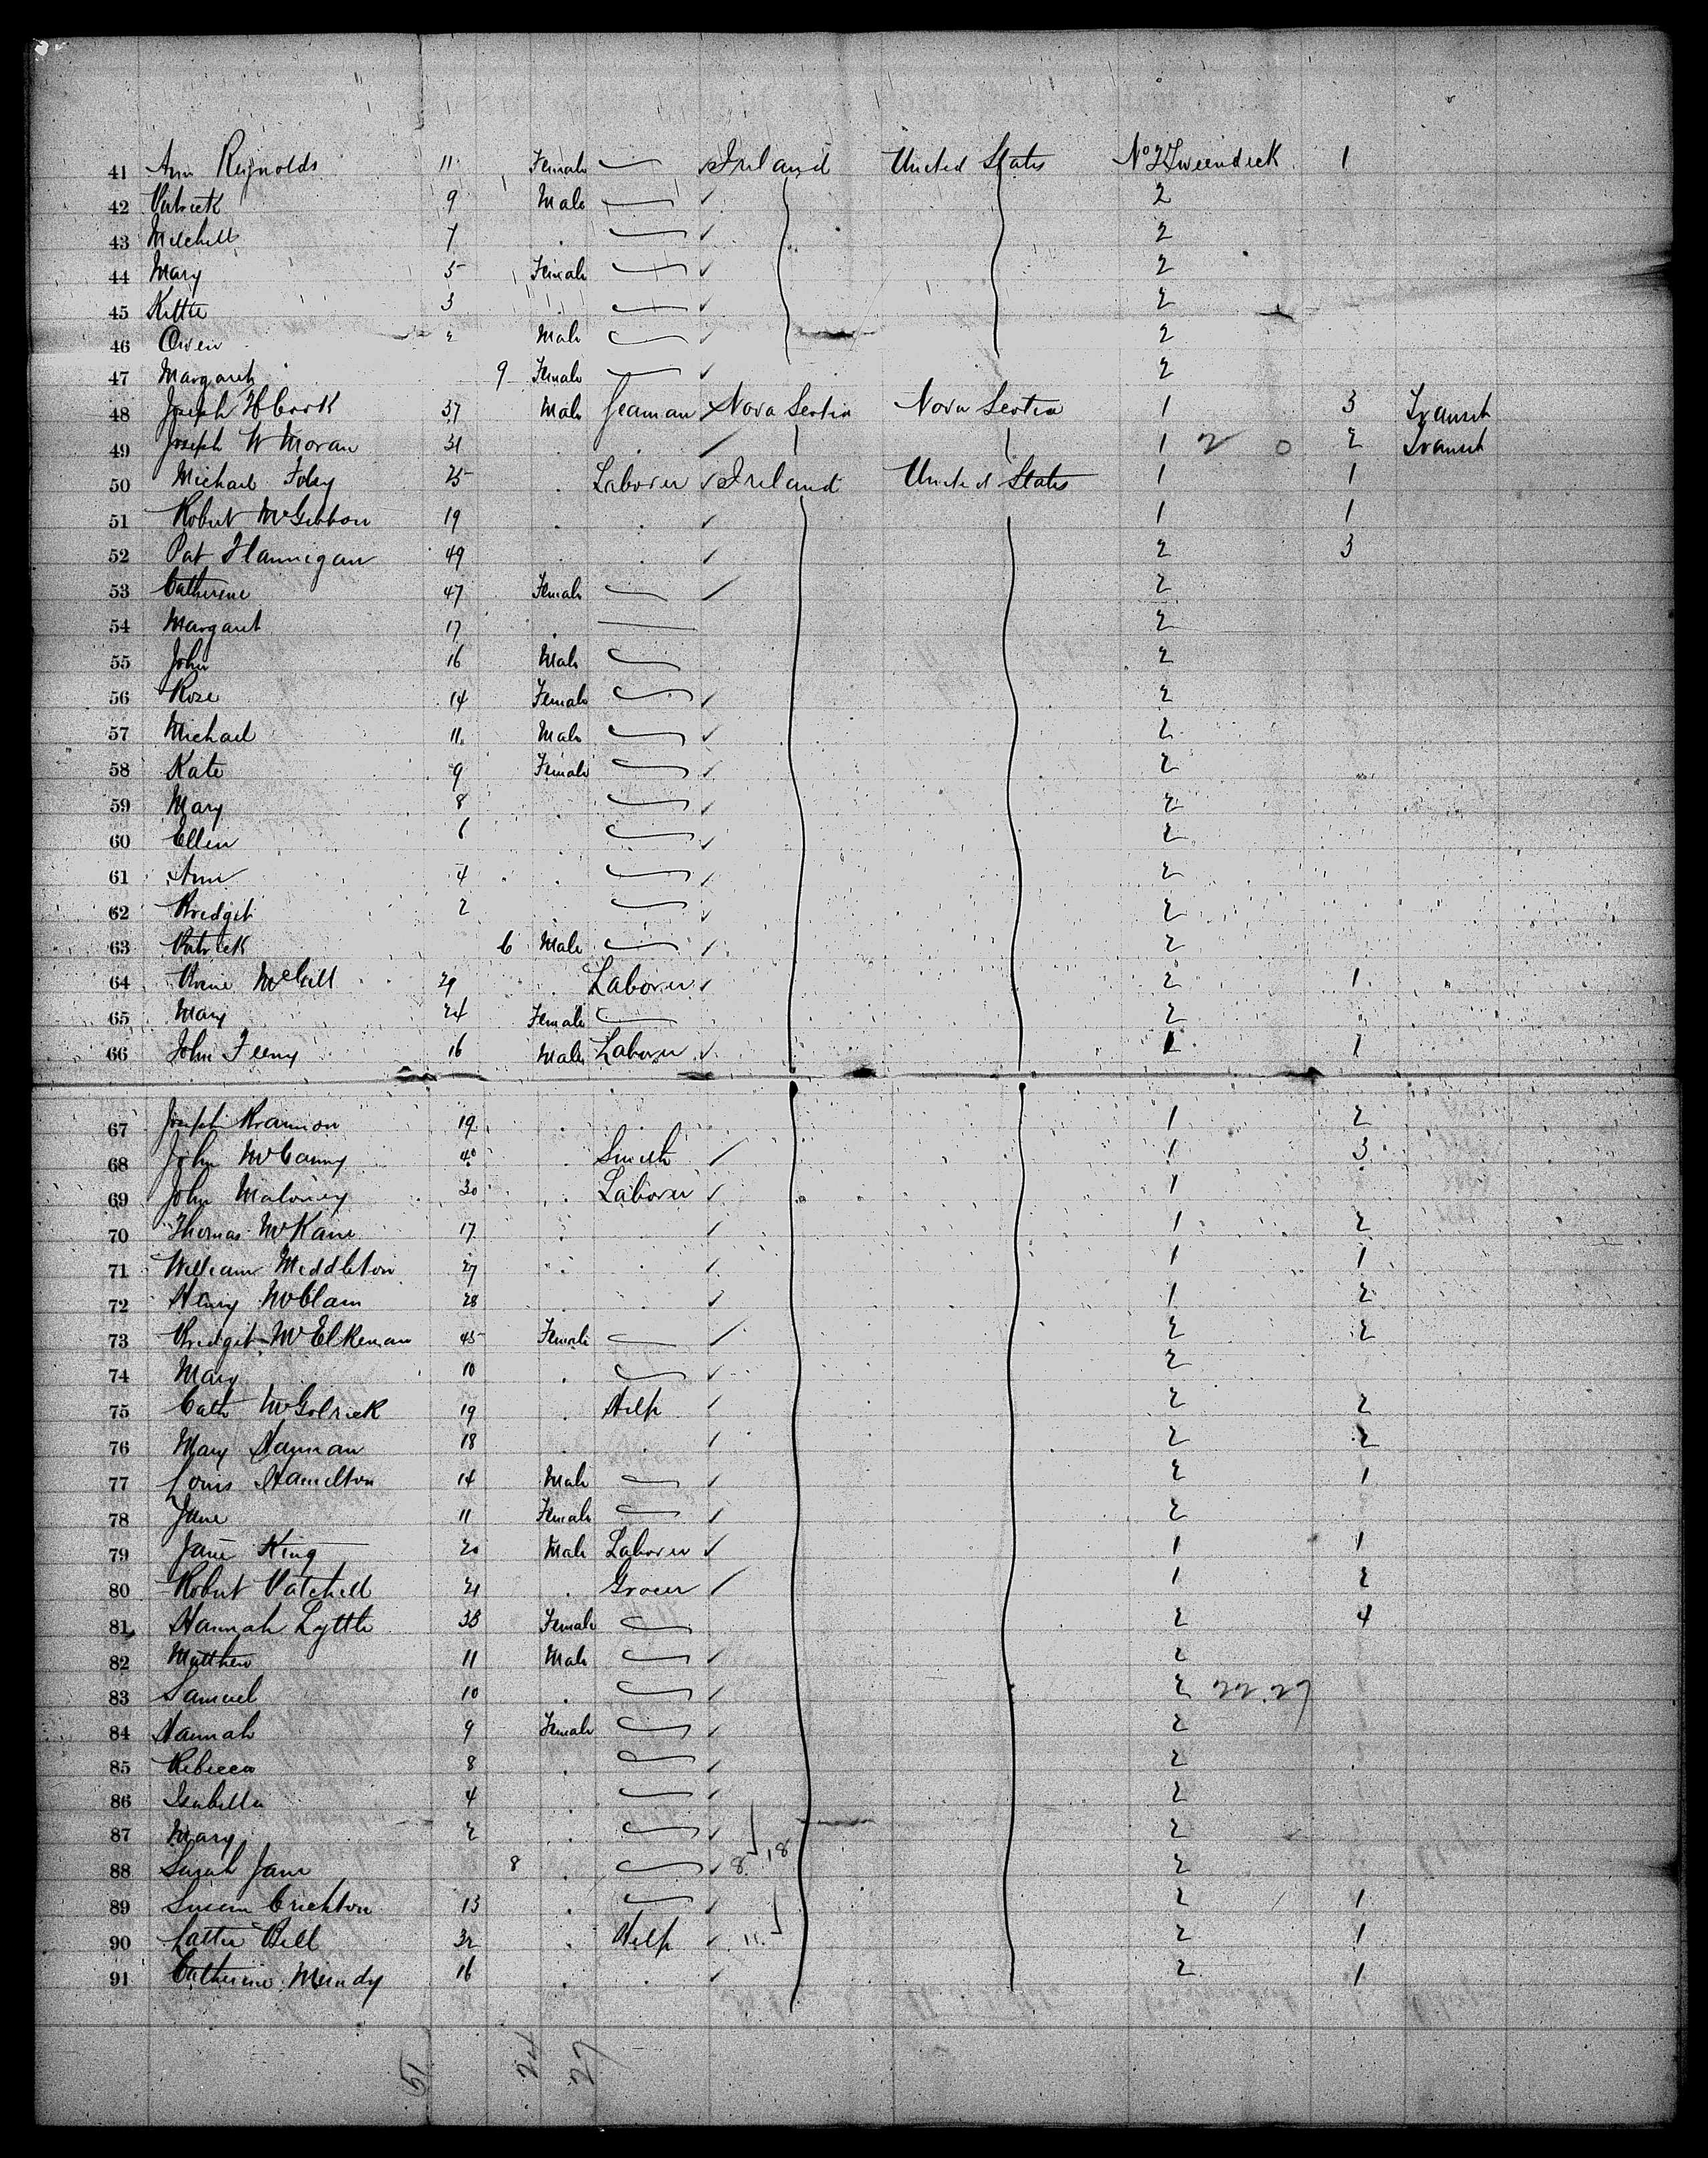 41 Ann Reynolds 11 Female Ireland United States No 2 Tweendeck 1
42 Patrick 9 Male 2
43 Mitchell 7 . 2
44 Mary 5 Female 2
45 Kittie 3 . 2
46 Owen 2 Male 2
47 Margaret 9 Female 2
48 Joseph H Cook 37 Male Seaman Nova Scotia Nova Scotia 1 3 Transit
49 Joseph W Moran 31 . . 1 2 0 2 Transit
50 Michael Foley 25 . Laborer Ireland United States 1 1
51 Robert McGibbon 19 . . 1 1
52 Pat Flannigan 49 . . 2 3
53 Catherine 47 Female 2
54 Margaret 17 . 2
55 John 16 Male 2
56 Rose 14 Female 2
57 Michael 11 Male 2
58 Kate 9 Female 2
59 Mary 8 . 2
60 Ellen 6 . 2
61 Ann 4 . 2
62 Bridget 2 . 2
63 Patrick 6 Male 2
64 McGill 29 . Laborer 2 1
65 Mary 24 Female 2
66 John Feeny 16 Male Laborer 1 1
67 Joseph Brannon 19 . . 1 2
68 John McCanny 40 . Smith 1 3
69 John Maloney 30 . Laborer 1
70 Thomas McKane 17 . . 1 2
71 William Middleton 27 . . 1 1
72 Henry McClain 28 . . 1 2
73 Bridget McElkenan 45 Female 2 2
74 Mary 10 . 2
75 Cath McGolrick 19 . Help 2 2
76 Mary Hannan 18 . . 2 2
77 Louis Hamilton 14 Male 2 1
78 Jane 11 Female 2
79 Jane King 20 Male Laborer 1 1
80 Robert Patchell 21 . Grocer 1 2
81 Hannah Lyttle 33 Female 2 4
82 Matthew 11 Male 2
83 Samuel 10 . 2 22.27
84 Hannah 9 Female 2
85 Rebecca 8 . 2
86 Isabella 4 . 2
87 Mary 2 . 2
88 Sarah Jane 8 . 8. 18 2
89 Susan Crichton 13 . 2 1
90 Lattie Bell 32 . Help 11. 2 1
91 Catherine Mundy 16 . . 2 1
51 24 27